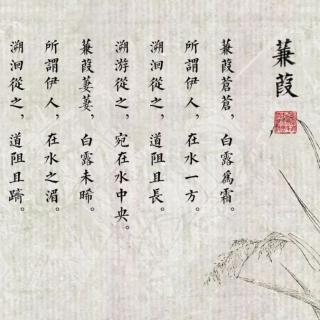 蒹葭
蒹葭蒼蒼，白露為霜。
所謂伊人，在水一方。
溯洄從之，道阻且長。
溯游從之，宛在水中央。
蒹葭萋萋，白露未晞。
所謂伊人，在水之湄。
溯洄從之，道阻且躋。